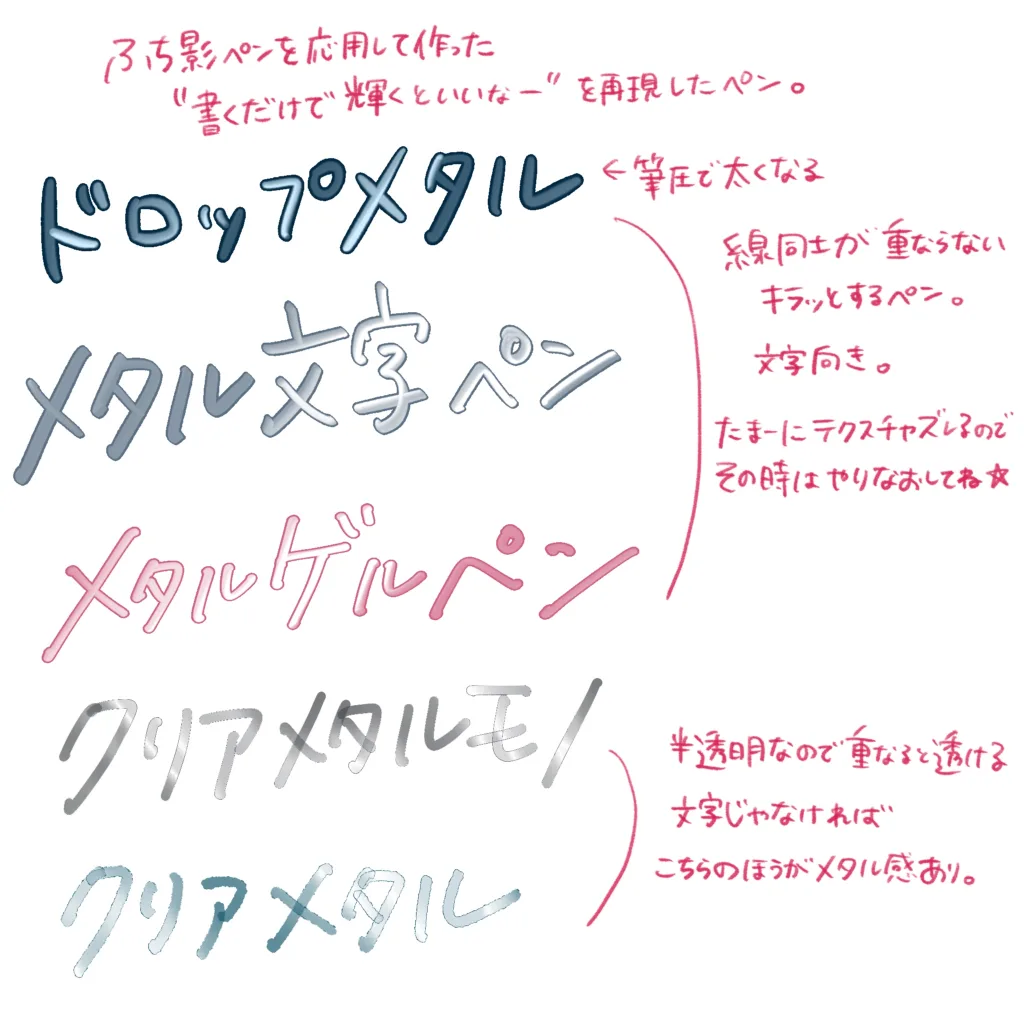 ふち影ペンを応用して作った
"書くだけで輝くといいなー"を再現したペン。
ドロップメタル
←筆圧で太くなる
線同士が重ならない
キラッとするペン。
文字向き。
たまーにテクスチャズレるので
その時はやりなおしてね☆
メタル文字ペン
メタルゲルペン
クリアメタルモノ
半透明なので重なると透ける
文字じゃなければ
こちらのほうがメタル感あり。
クリアメタル